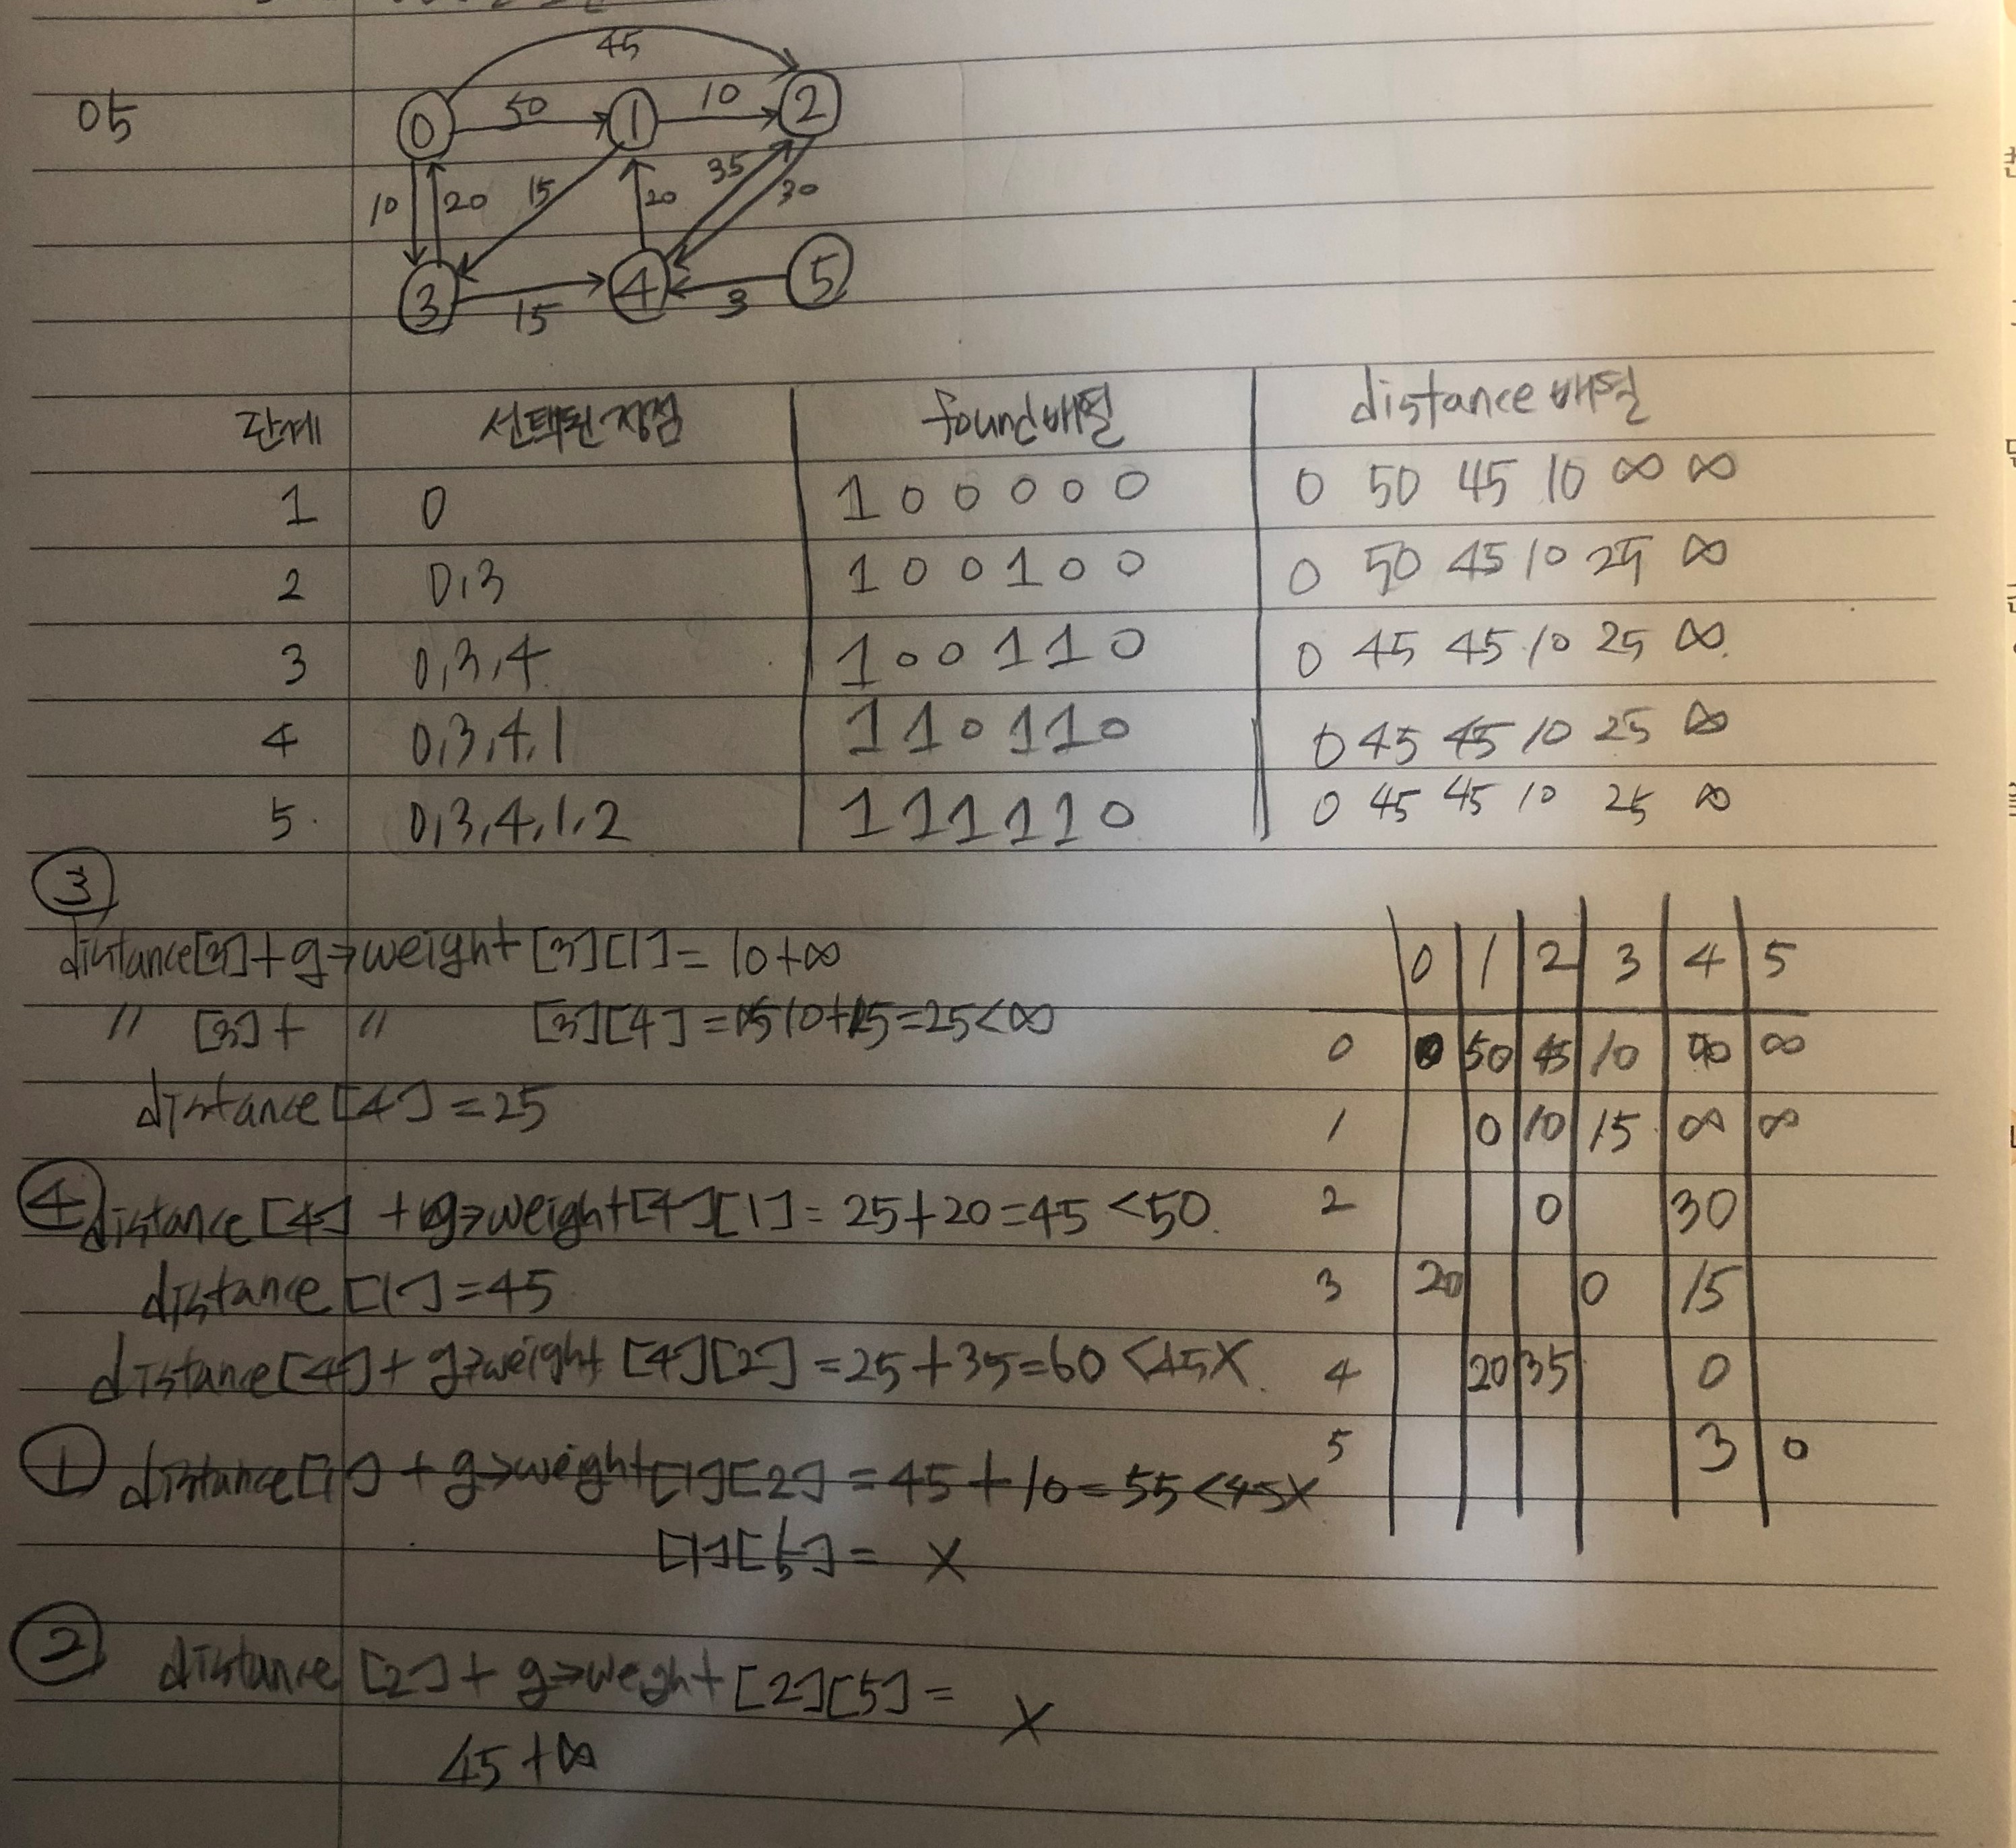 05
45
0 50 1 10 2
10 20 15 20 35 30
3 15 4 3 5
단계 선택된 정점 found배열 distance 배열
1 0 1 0 0 0 0 0 0 50 45 10 ∞ ∞
2 0,3 1 0 0 1 0 0 0 50 45 10 25 ∞
3 0,3,4 1 0 0 1 1 0 0 45 45 10 25 ∞
4 0,3,4,1 1 1 0 1 1 0 0 45 45 10 25 ∞
5. 0,3,4,1,2 1 1 1 1 1 0 0 45 45 10 25 ∞
③
distance[3]+g→weight[3][1]=10+∞
〃 [3]+ 〃 [3][4]=10+15=25<∞
distance[4]=25
④ distance[4]+g→weight[4][1]=25+20=45<50.
distance[1]=45
distance[4]+g→weight[4][2]=25+35=60<45X.
① distance[1]+g→weight[1][2]=45+10=55<45X
[1][5]= X
② distance[2]+g→weght[2][5]= X
45+∞
0 1 2 3 4 5
0 0 50 45 10 ∞
1 0 10 15 ∞ ∞
2 0 30
3 20 0 15
4 20 35 0
5 3 0